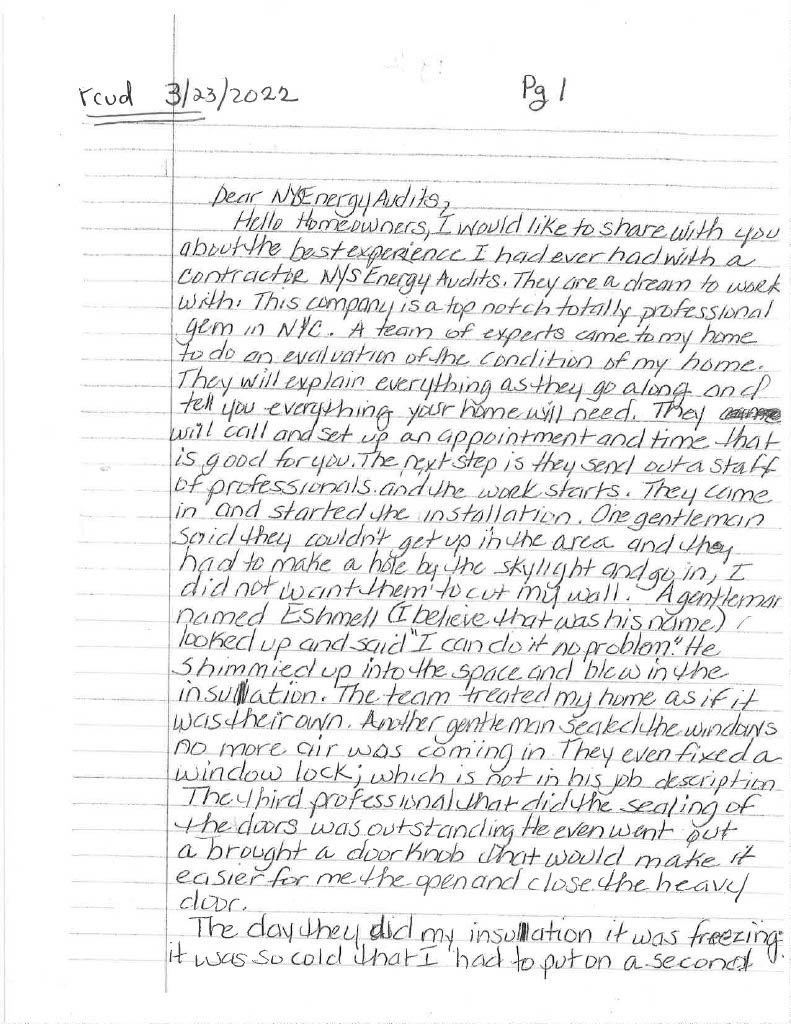 rcvd 3/23/2022 Pg 1
Dear NYSEnergyAudits,
Hello Homeowners, I would like to share with you
about the best experience I had ever had with a
contractor NYS Energy Audits. They are a dream to work
with. This company is a top notch totally professional
gem in NYC. A team of experts came to my home
to do an evaluation of the condition of my home.
They will explain everything as they go along and
tell you everything your home will need. They
will call and set up an appointment and time that
is good for you. The next step is they send out a staff
of professionals and the work starts. They came
in and started the installation. One gentleman
said they couldn't get up in the area and they
had to make a hole by the skylight and go in, I
did not want them to cut my wall. A gentleman
named Eshmell (I believe that was his name)
looked up and said "I can do it no problem." He
shimmied up into the space and blew in the
insullation. The team treated my home as if it
was their own. Another gentleman sealed the windows
no more air was coming in. They even fixed a
window lock; which is not in his job description
The third professional that did the sealing of
the doors was outstanding. He even went out
a brought a door knob that would make it
easier for me the open and close the heavy
door.
The day they did my insullation it was freezing:
it was so cold that I had to put on a second